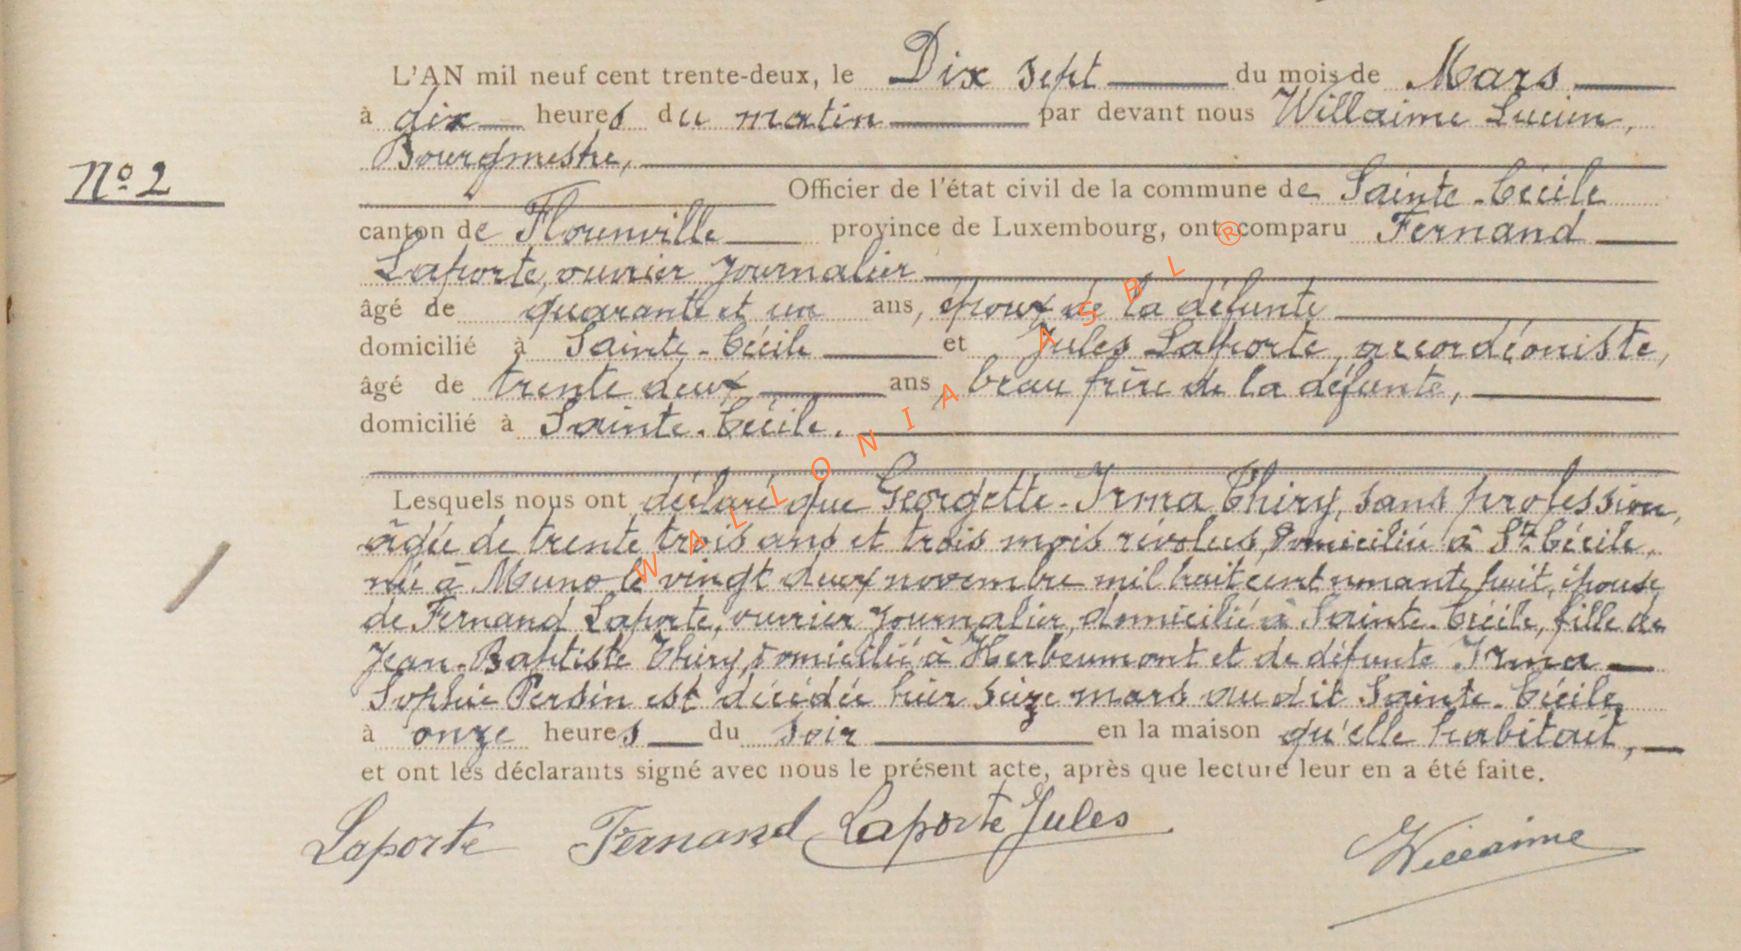 L'AN mil neuf cent trente-deux, le Dix sept du mois de Mars
à dix heures du matin par devant nous Willaime Lucien,
Bourgmestre,
N° 2
Officier de l'état civil de la commune de Sainte-Cécile
canton de Florenville province de Luxembourg, ont comparu Fernand
Laporte, ouvrier journalier
âgé de quarante et un ans, époux de la défunte
domicilié à Sainte-Cécile et Jules Laporte, accordéoniste,
âgé de trente deux ans beau frère de la défunte,
domicilié à Sainte-Cécile.
Lesquels nous ont déclaré que Georgette-Irma Thiry, sans profession,
âgée de trente trois ans et trois mois révolus, domiciliée à Ste Cécile,
née à Muno le vingt deux novembre mil huit cent nonante huit, épouse
de Fernand Laporte, ouvrier journalier, domicilié à Sainte-Cécile, fille de
Jean-Baptiste Thiry, domicilié à Herbeumont et de défunte Irma
Sophie Persin est décédée hier seize mars au dit Sainte-Cécile
à onze heures du soir en la maison qu'elle habitait,
et ont les déclarants signé avec nous le présent acte, après que lecture leur en a été faite.
Laporte Fernand Laporte Jules Willaime
WALLONIA ASBL ®